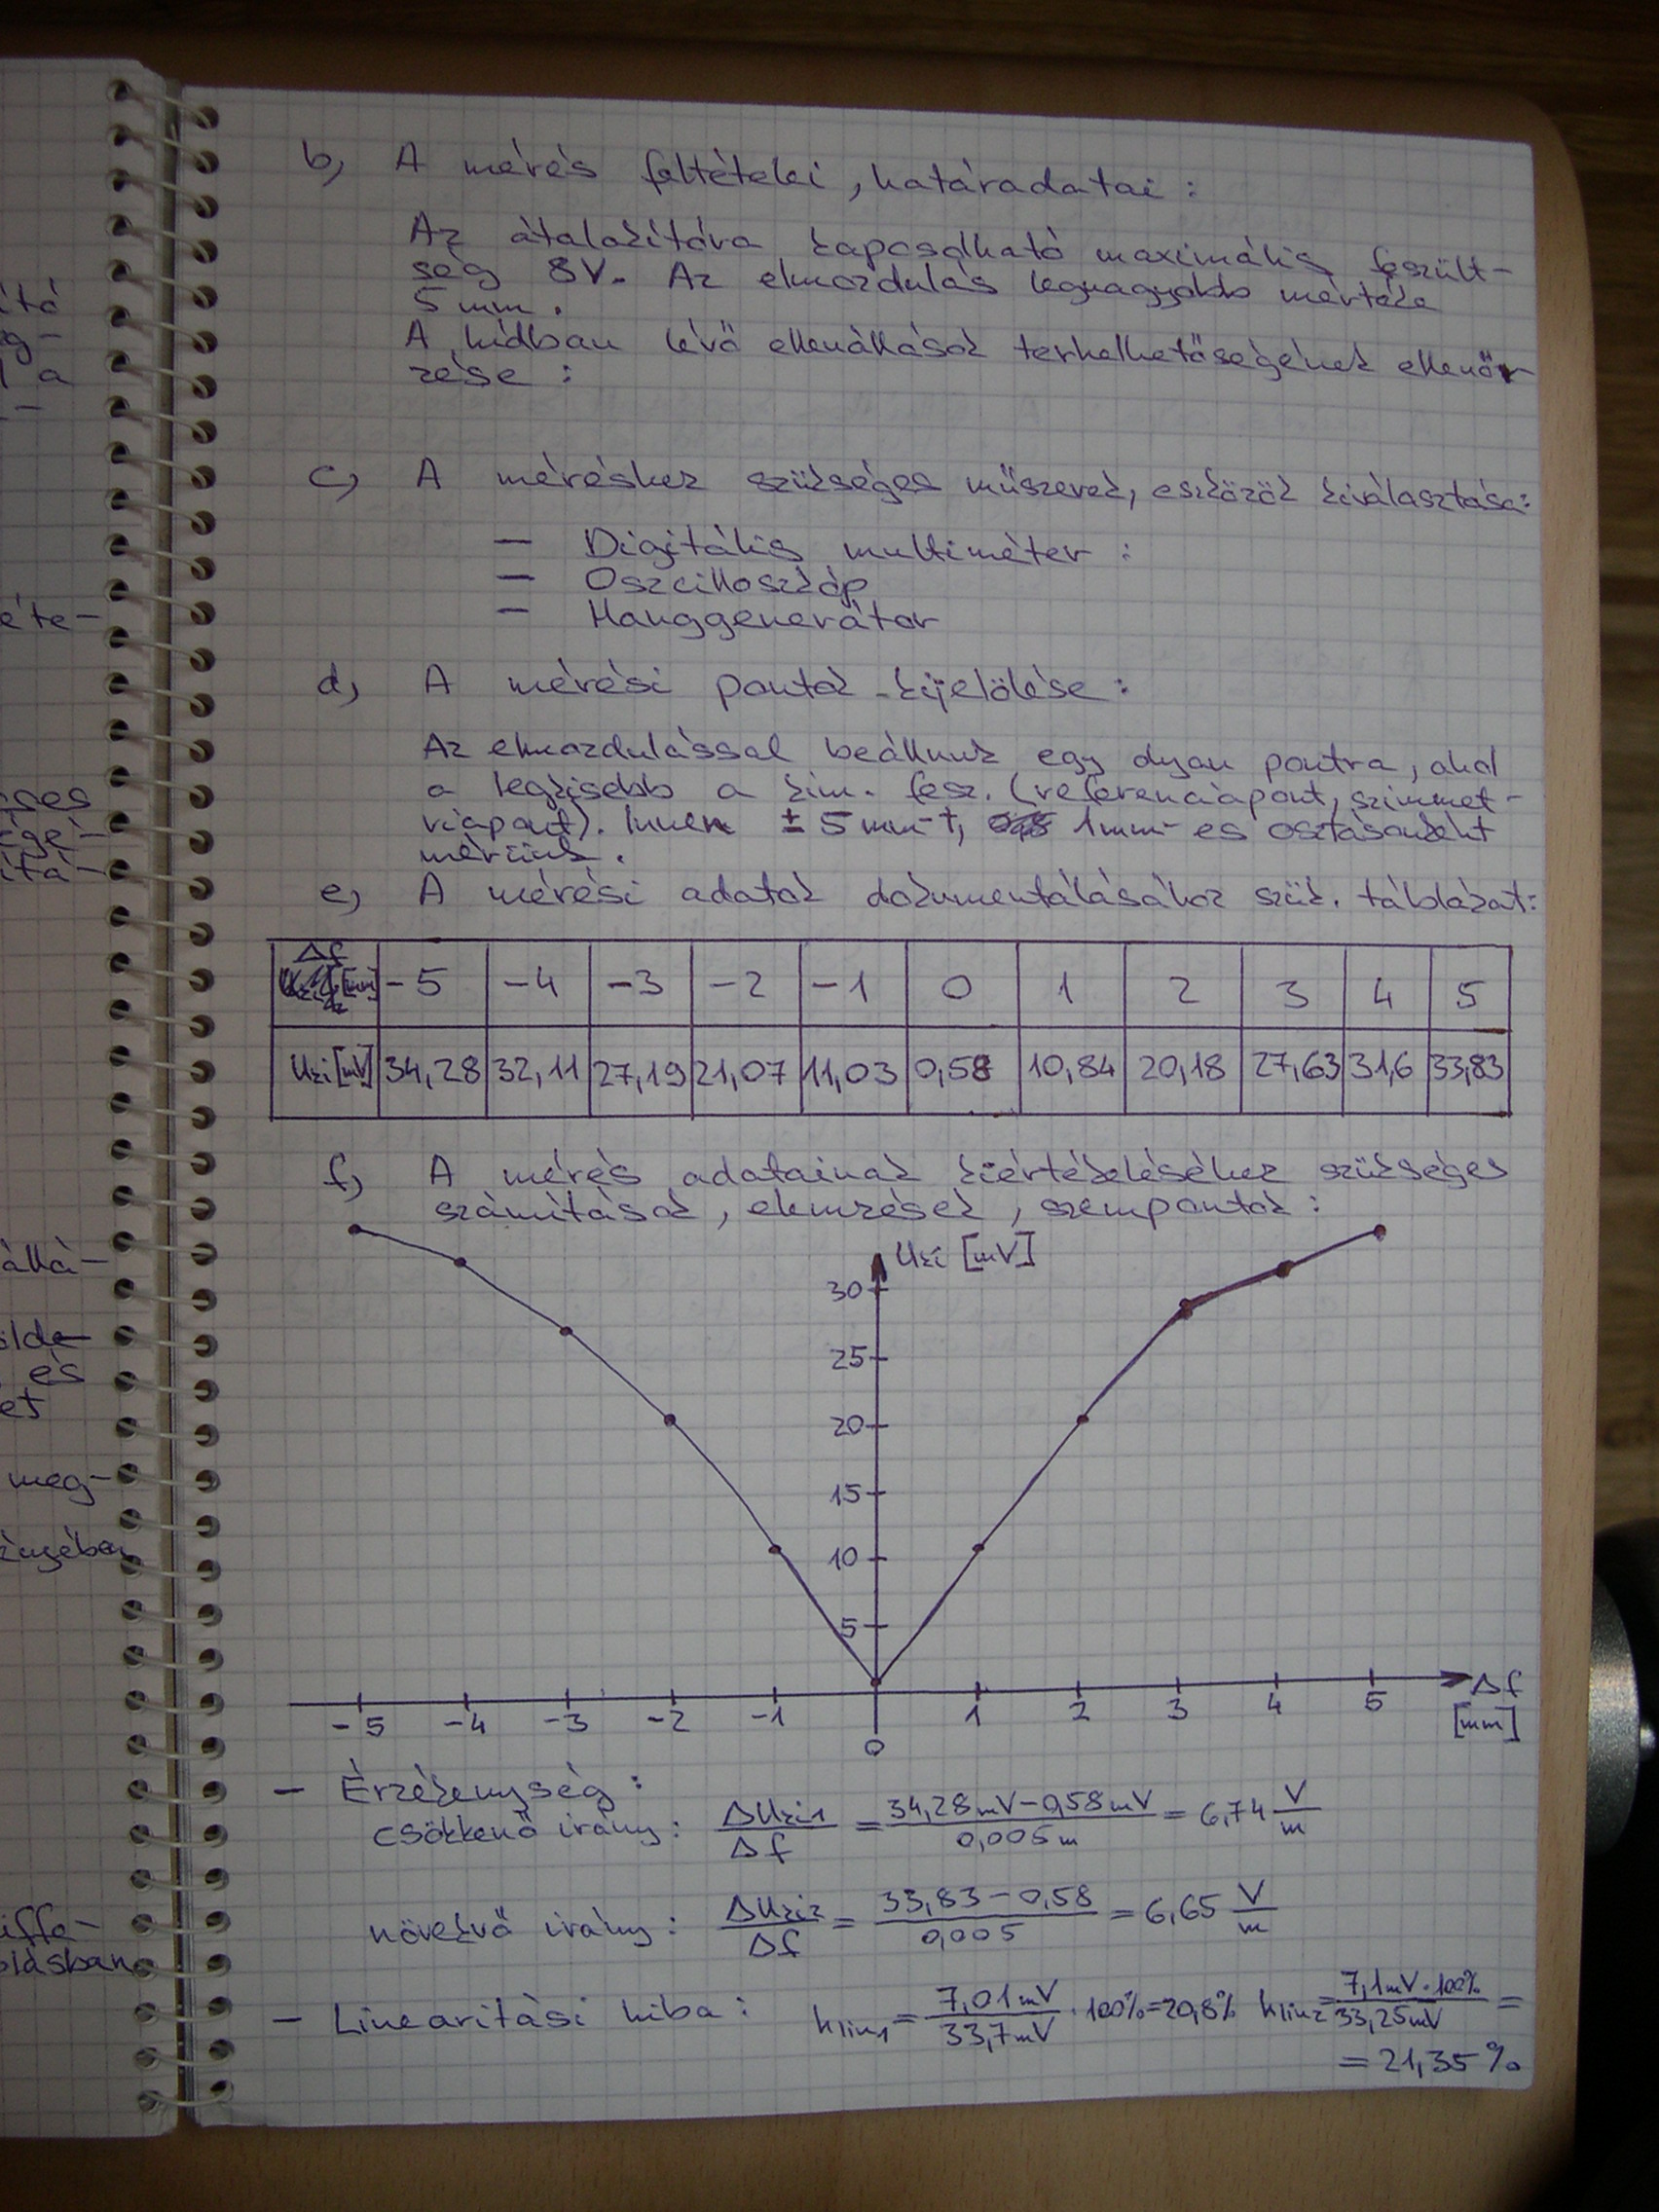 b, A mérés feltételei, határadatai:
Az átalakítóra kapcsolható maximális feszült-
ség 8V. Az elmozdulás legnagyobb mértéke
5 mm.
A hídban lévő ellenállások terhelhetőségének ellenőr-
zése:
c, A méréshez szükséges műszerek, eszközök kiválasztása:
— Digitális multiméter:
— Oszcilloszkóp
— Hanggenerátor
d, A mérési pontok kijelölése:
Az elmozdulással beállunk egy olyan pontra, ahol
a legkisebb a kim. fesz. (referenciapont, szimmet-
riapont). Innen ± 5 mm-t, 1mm-es osztásonként
mérünk.
e, A mérési adatok dokumentálásához szük. táblázat:
Δf [mm] -5 -4 -3 -2 -1 0 1 2 3 4 5
Uki [mV] 34,28 32,11 27,19 21,07 11,03 0,58 10,84 20,18 27,63 31,6 33,83
f, A mérés adatainak kiértékeléséhez szükséges
számítások, elemzések, szempontok:
Uki [mV]
30
25
20
15
10
5
-5 -4 -3 -2 -1 0 1 2 3 4 5 Δf
[mm]
— Érzékenység:
csökkenő irány: ΔUki1/Δf = (34,28mV-0,58mV)/0,005m = 6,74 V/m
növekvő irány: ΔUki2/Δf = (33,83-0,58)/0,005 = 6,65 V/m
— Linearitási hiba: hlin1 = 7,01mV/33,7mV · 100% = 20,8% hlin2 = 7,1mV·100%/33,25mV =
= 21,35%
itó
g-
l a
-
éte-
ges
égé-
ítá-
állá-
és
et
meg-